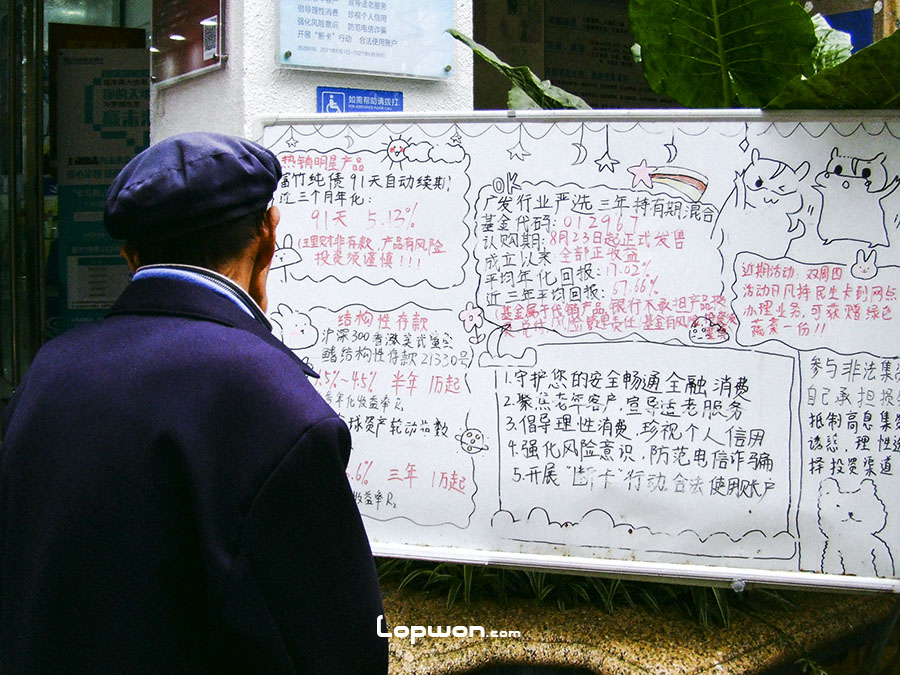 倡导理性消费 珍视个人信用
强化风险意识 防范电信诈骗
开展"断卡"行动 合法使用账户
如需帮助请拨打
热销明星产品
富竹纯债91天自动续期!
近三个月年化:
91天 5.13%
(理财非存款、产品有风险
投资须谨慎!!!
结构性存款
沪深300看涨
结构性存款21330号
.5%~4.5% 半年 1万起
年化收益率R₂
球资产轮动指数
.6% 三年 1万起
收益率R₂
OK
广发行业严选三年持有期混合
基金代码:012967
认购期:8月23日起正式发售
成立以来 全部正收益
平均年化回报:17.02%
近三年平均回报:67.66%
(基金属于代销产品,银行不承担产品投资
兑付风险管理责任)基金有风险
1.守护您的安全畅通金融消费
2.聚焦老年客户,宣导适老服务
3.倡导理性消费,珍视个人信用
4.强化风险意识,防范电信诈骗
5.开展"断卡"行动合法使用账户
近期活动:双周团
活动日凡持民生卡到网点
办理业务,可获赠绿色
蔬菜一份!!
参与非法集资
自己承担损
抵制高息集资
诱惑,理性选
择投资渠道
Lopwon.com